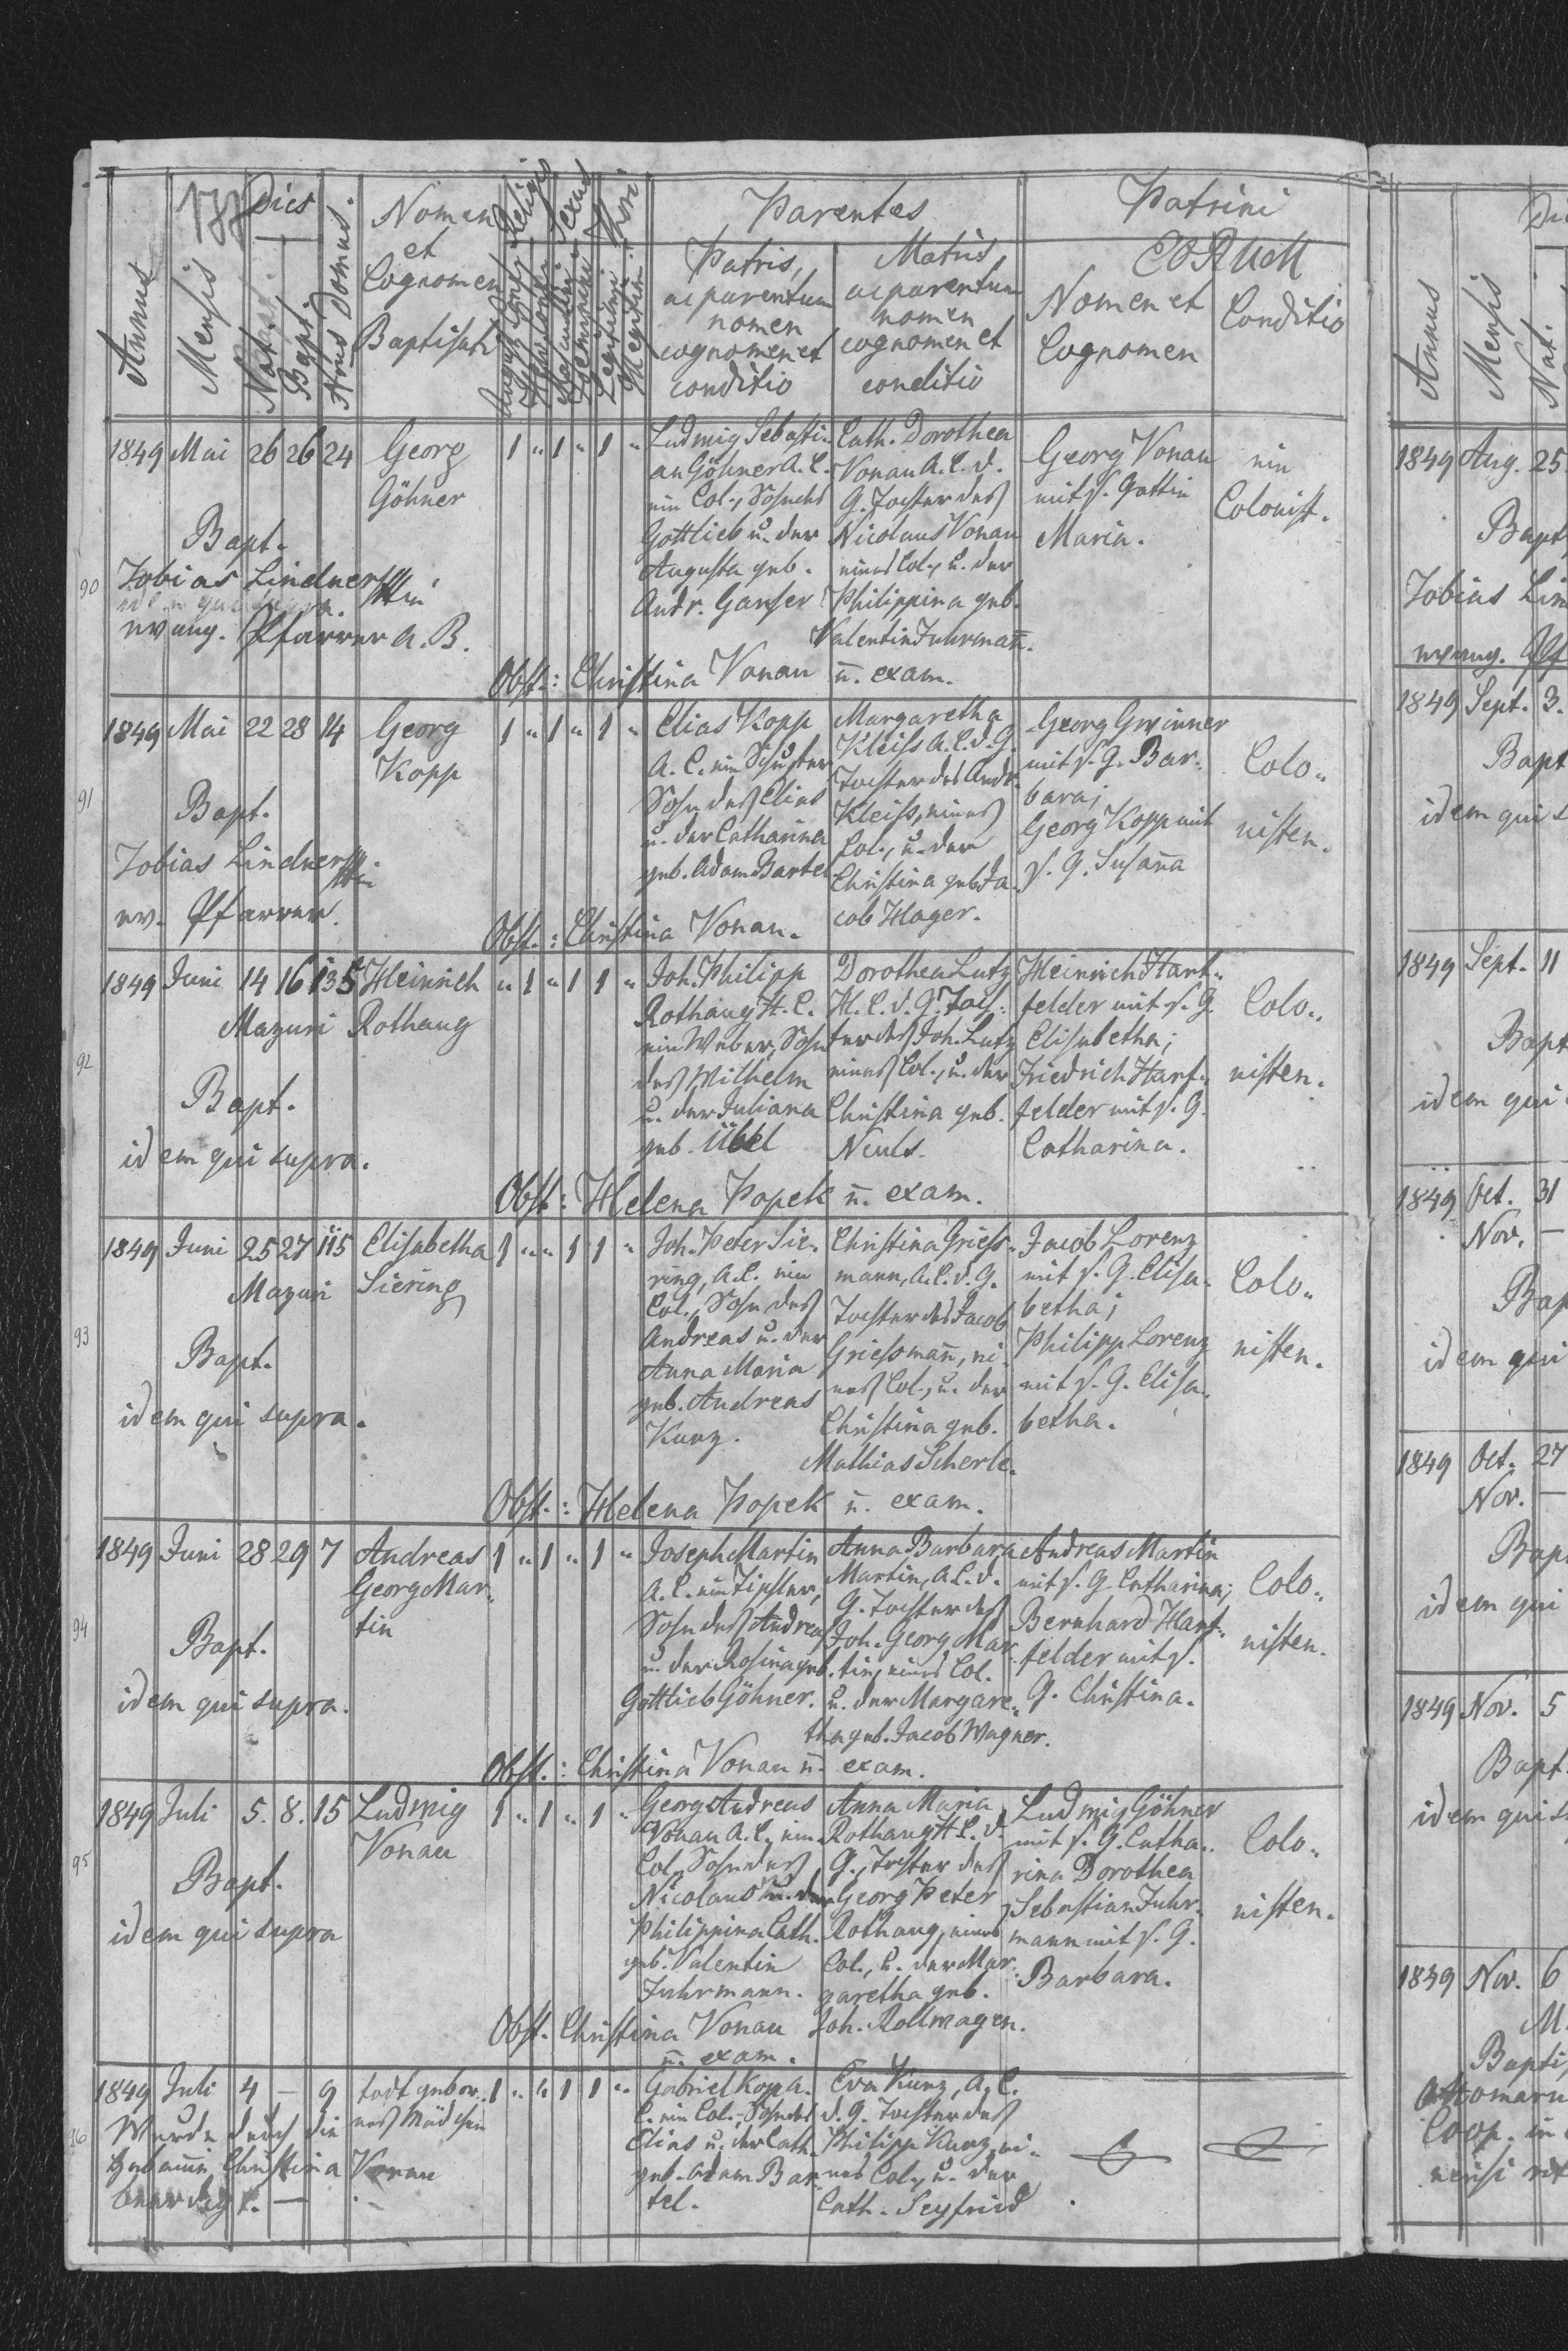 Annus
Mensis
Dies
Nat.
Bapt.
Nrus Domus.
Nomen
et
Cognomen
Baptisati
Religio
Sexus
Thori
Parentes
Patris,
ac parentum
nomen
cognomen et
conditio
Matris,
ac parentum
nomen
cognomen et
conditio
Patrini
EORUM
Nomen et
Cognomen
Conditio
1849 Mai 26 26 24
Georg
Göhner
1 " 1 " 1 "
Bapt.
Tobias Lindner
evang. Pfarrer A. B.
90
Ludwig Sebasti-
an Göhner A. C.
ein Col., Sohn des
Gottlieb u. der
Augusta geb.
Andr. Ganser
Cath. Dorothea
Vonau A. C. d.
G. Tochter des
Nicolaus Vonau
eines Col., u. der
Philippina geb.
Valentin Fuhrman̄.
Georg Vonau
mit s. Gattin
Maria.
ein
Colonist.
Obst.: Christina Vonau u. exam.
1849 Mai 22 28 14
Georg
Kopp
1 " 1 " 1 "
91
Bapt.
Tobias Lindner
ev. Pfarrer.
Elias Kopp
A. C. ein Schuster
Sohn des Elias
u. der Catharina
geb. Adam Bartel
Margaretha
Kleiss A. C. d. G.
Tochter des Andr.
Kleiss, eines
Col., u. der
Christina geb. Ja-
cob Hager.
Georg Gwinner
mit s. G. Bar-
bara;
Georg Kopp mit
s. G. Susan̄a
Colo-
nisten.
Obst.: Christina Vonau.
1849 Juni 14 16 135
Mazuri
Heinrich
Rothaug
" 1 " 1 1 "
92
Bapt.
idem qui supra.
Joh. Philipp
Rothaug H. C.
ein Weber, Sohn
des Wilhelm
u. der Juliana
geb. Übel
Dorothea Lutz
H. C. d. G. Toch-
ter des Joh. Lutz
eines Col., u. der
Christina geb.
Neuls.
Heinrich Hart-
felder mit s. G.
Elisabetha;
Friedrich Hart-
felder mit s. G.
Catharina.
Colo-
nisten.
Obst: Helena Popek u. exam.
1849 Juni 25 27 115
Mazuri
Elisabetha
Siering
1 " " 1 1 "
93
Bapt.
idem qui supra.
Joh. Peter Sie-
ring, A. C. ein
Col., Sohn des
Andreas u. der
Anna Maria
geb. Andreas
Kunz.
Christina Griess-
mann, A. C. d. G.
Tochter des Jacob
Griessman̄, ei-
nes Col., u. der
Christina geb.
Mathias Scherle.
Jacob Lorenz
mit s. G. Elisa-
betha;
Philipp Lorenz
mit s. G. Elisa-
betha.
Colo-
nisten.
Obst.: Helena Popek u. exam.
1849 Juni 28 29 7
Andreas
Georg Mar-
tin
1 " 1 " 1 "
94
Bapt.
idem qui supra.
Joseph Martin
A. C. ein Tischler,
Sohn des Andreas
u. der Rosina geb.
Gottlieb Göhner.
Anna Barbara
Martin, A. C. d.
G. Tochter des
Joh. Georg Mar-
tin, eines Col.
u. der Margare-
tha geb. Jacob Wagner.
Andreas Martin
mit s. G. Catharina;
Bernhard Hart-
felder mit s.
G. Christina.
Colo-
nisten.
Obst.: Christina Vonau u. exam.
1849 Juli 5. 8. 15
Ludwig
Vonau
1 " 1 " 1 "
95
Bapt.
idem qui supra
Georg Andreas
Vonau A. C. ein
Col., Sohn des
Nicolaus u. der
Philippina Cath.
geb. Valentin
Fuhrmann.
Anna Maria
Rothaug H. C. d.
G., Tochter des
Georg Peter
Rothaug, eines
Col., u. der Mar-
garetha geb.
Joh. Rollwagen.
Ludwig Göhner
mit s. G. Catha-
rina Dorothea
Sebastian Fuhr-
mann mit s. G.
Barbara.
Colo-
nisten.
Obst. Christina Vonau
u. exam.
1849 Juli 4 – 9
todt gebor-
nes Mädchen
1 " " 1 1 "
96
Wurde durch die
Hebamme Christina Vonau
beerdigt. –
Gabriel Kop A.
C. ein Col., Sohn des
Elias u. der Cath.
geb. Adam Bar-
tel.
Eva Kunz, A. C.
d. G. Tochter des
Philipp Kunz, ei-
nes Col., u. der
Cath. Seyfried
Annus
Mensis
Nat.
1849 Aug. 25
Bapt
Tobias Lin
evang. Pf
1849 Sept. 3.
Bapt
idem qui s
1849 Sept. 11
Bapt
idem qui
1849 Oct. 31
Nov. –
Bap
idem qui
1849 Oct. 27
Nov. –
Bap
idem qui
1849 Nov. 5
Bapt.
idem qui s
1849 Nov. 6
M.
Bapti
Coop. in